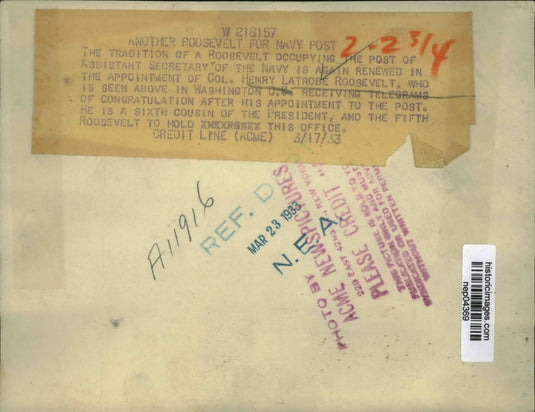 W 218157
ANOTHER ROOSEVELT FOR NAVY POST
2-2 3/4
THE TRADITION OF A ROOSEVELT OCCUPYING THE POST OF
ASSISTANT SECRETARY OF THE NAVY IS AGAIN RENEWED IN
THE APPOINTMENT OF COL. HENRY LATROBE ROOSEVELT, WHO
IS SEEN ABOVE IN WASHINGTON D.C. RECEIVING TELEGRAMS
OF CONGRATULATION AFTER HIS APPOINTMENT TO THE POST.
HE IS A SIXTH COUSIN OF THE PRESIDENT, AND THE FIFTH
ROOSEVELT TO HOLD THIS OFFICE.
CREDIT LINE (ACME) 3/17/33
A11916
REF. D
MAR 23 1933
N. E. A.
PHOTO BY
ACME NEWSPICTURES
220 EAST 42ND ST., NEW YORK
PLEASE CREDIT
THIS PICTURE IS SOLD TO YOU
WITHOUT WRITTEN
historicimages.com
nep04369